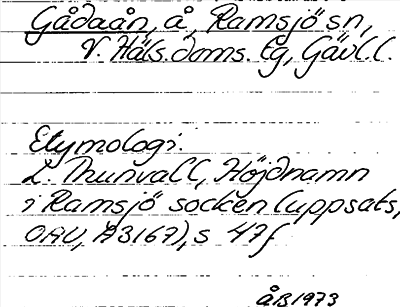 Gådaån, å, Ramsjö sn,
V. Häls. doms. lg, Gävl. l.
Etymologi:
L. Thunvall, Höjdnamn
i Ramsjö socken (uppsats,
OAU, A3167), s 47f
ÅB 1973